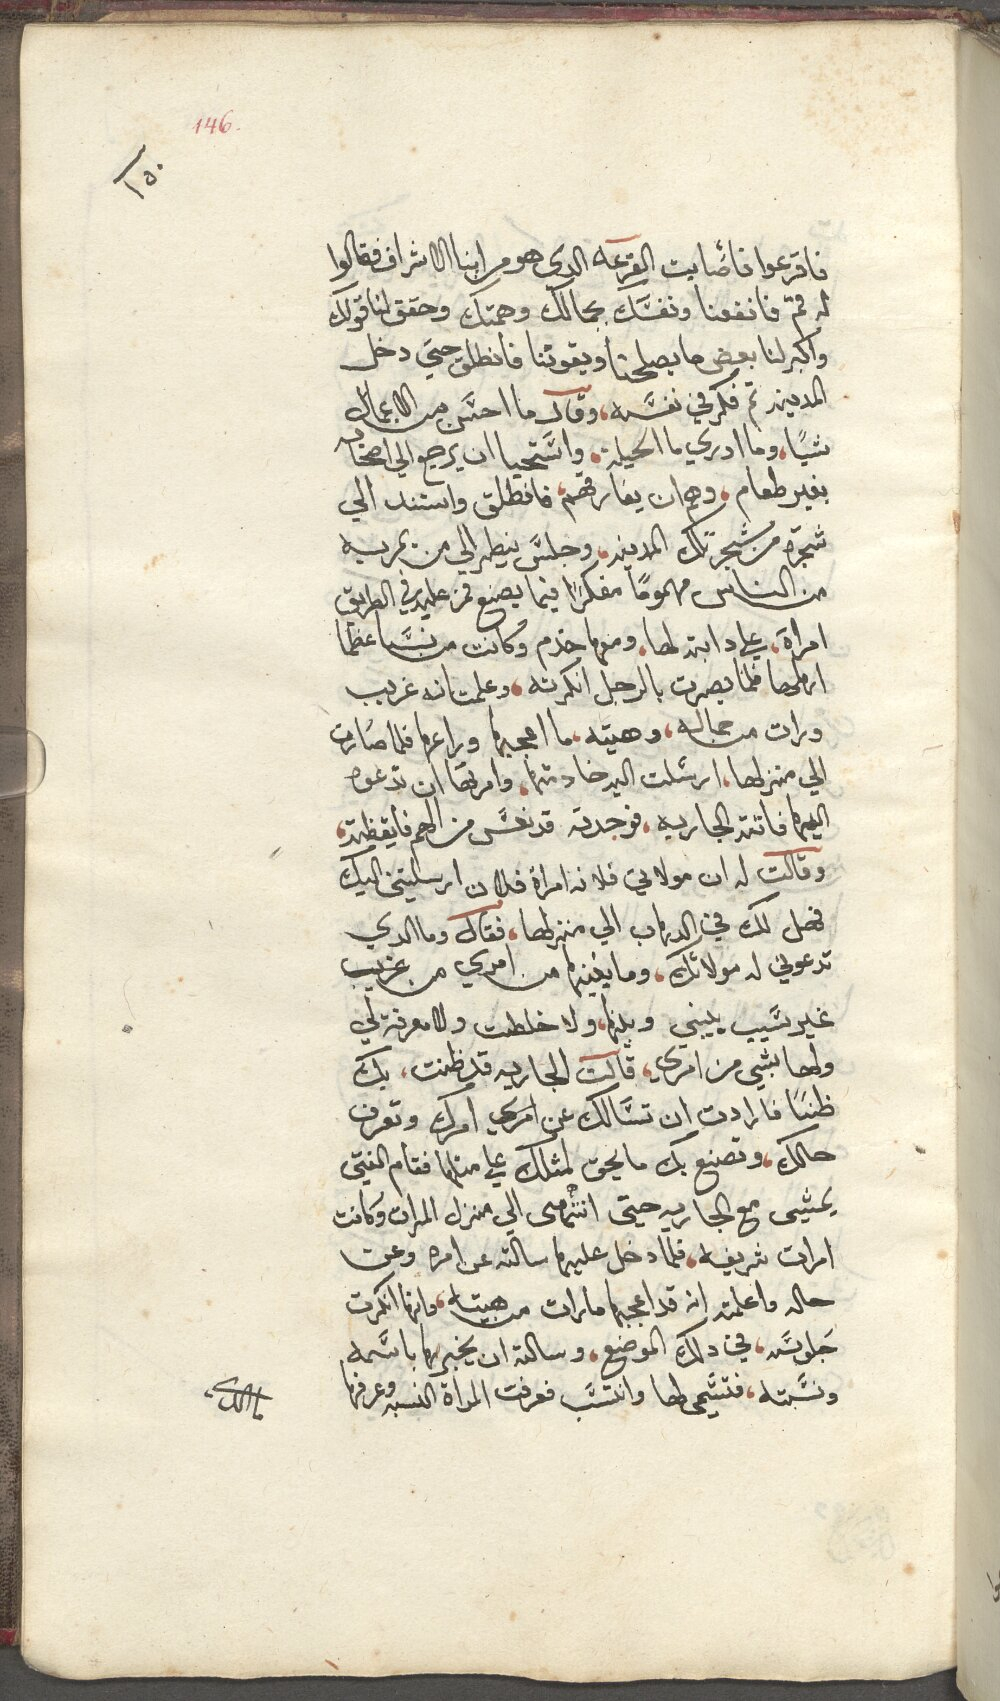 146.
١٥٠
فاقرعوا فاصابت القرعه الدي هو من ابنا الاشراف فقالوا
له قم فانفعنا ونفسك بجمالك وهمتك وحقق لنا قولك
واكبر لنا بعض ما يصلحنا ويقوتنا فانطلق حتي دخل
المدينه تم فكر في نفسه، وقال ما احسن من الاعمال
شيًا، وما ادري ما الحيلة، واستحيا ان يرجع الي اصحابه
بغير طعام، وهم ان يفارقهم، فانطلق واستند الي
شجرة من شجر تلك المدينه، وجلس ينظر الي من يمر به
من الناس مهمومًا مفكرًا فيما يصنع فمر عليه في الطريق
امراة، علي دابته لها، ومعها خدم وكانت من نسا عظما
ارضها فلما بصرت بالرجل انكرته، وعلمت انه غريب
ورات من جماله، وهيته، ما اعجبها وراعها فلما صارت
الي منزلها، ارسلت اليه خادمتها، وامرتها ان تدعوه
اليها فاتته الجاريه، فوجدته قد نعس من الهم فايقظته،
وقالت له ان مولاتي فلانه امراة فلان ارسلتني اليك
فهل لك في الدهاب الي منزلها، فقال وما الدي
تدعوني له مولاتك، وما يعينها من امري من غريب
غير سبب بيني وبينها، ولا خلطت ولا معرفة لي
ولها بشي من امري، قالت الجاريه قد ظنت، بك
ظنًا فارادت ان تسالك عن امري امرك وتعرف
حالك، وتصنع بك ما يحق لمثلك علي مثلها فقام الفتي
يمشي مع الجاريه حيتي انتهي الي منزل المراة وكانت
امرات شريفه، فلما دخل عليها سالته عن امره وعن
حاله واعلمته انه قد اعجبها ما رات من هيته، وانها انكرت
جلوسه، في دلك الموضع، وسالته ان يخبرها باسمه
ونسبته، فتسمي لها وانتسب فعرفت المراة النسبه وعرفها